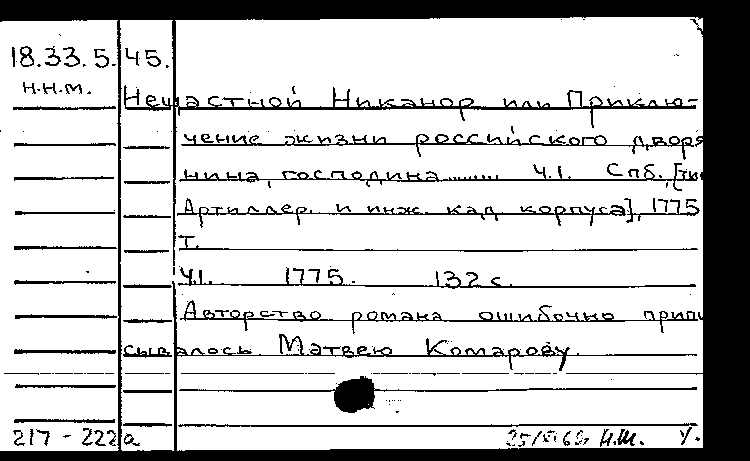 18.33.5.45.
н.н.м.
Нещастной Никанор или Приклю-
чение жизни российского дворя
нина, господина ........ Ч.I. Спб., [ти
Артиллер. и инж. кад корпуса], 1775
т.
Ч.I. 1775. 132 с.
Авторство романа ошибочно припи
сывалось Матвею Комарову.
217 - 222а
Н.Ш. У.